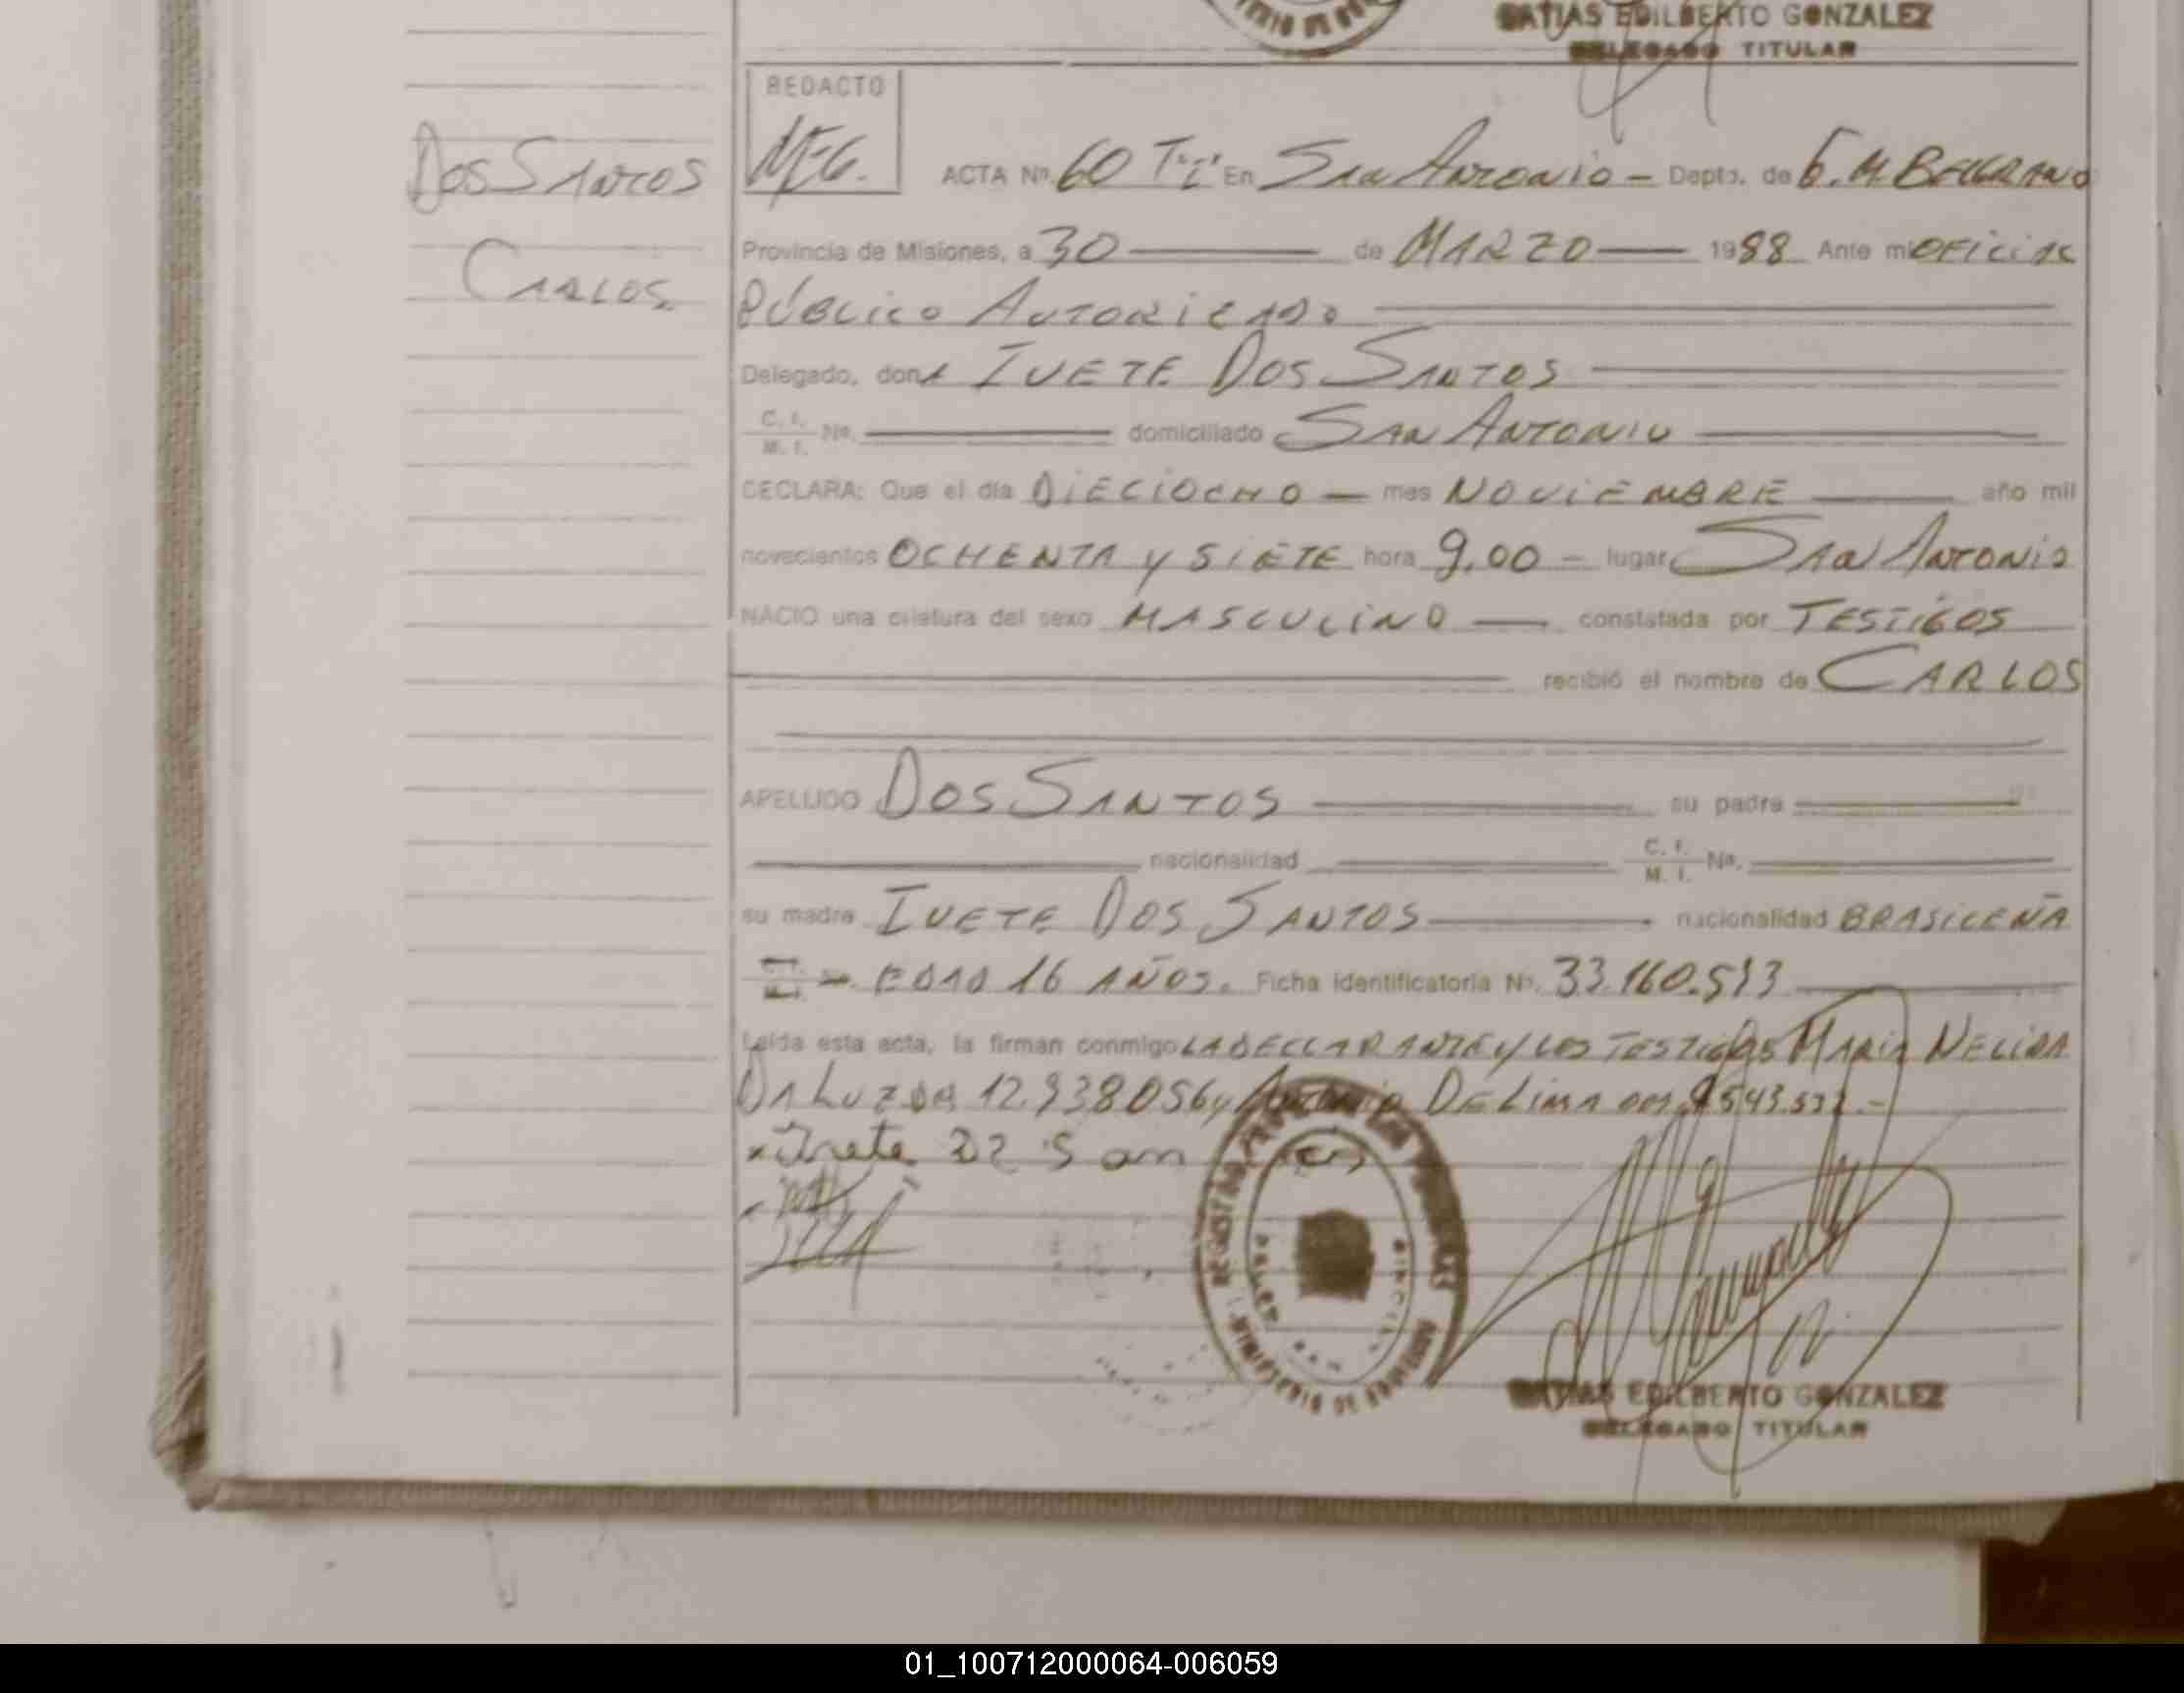 MATIAS EDILBERTO GONZALEZ
DELEGADO TITULAR
REDACTO
DOS SANTOS
CARLOS
ACTA Nº 60 En SAN ANTONIO - Depto. de G. M. BELGRANO
Provincia de Misiones, a 30 de MARZO 1988 Ante mi OFICIAL
PÚBLICO AUTORIZADO
Delegado, don A IVETE DOS SANTOS
C. I. M. I. Nº. domiciliado SAN ANTONIO
DECLARA: Que el día DIECIOCHO - mes NOVIEMBRE año mil
novecientos OCHENTA Y SIETE hora 9,00 - lugar SAN ANTONIO
NACIO una criatura del sexo MASCULINO constatada por TESTIGOS
recibió el nombre de CARLOS
APELLIDO DOS SANTOS su padre
nacionalidad C. I. M. I. Nº.
su madre IVETE DOS SANTOS nacionalidad BRASILEÑA
EDAD 16 AÑOS. Ficha identificatoria Nº. 33.160.513
Leída esta acta, la firman conmigo LA DECLARANTE Y LOS TESTIGOS MARIA NELIDA
DA LUZ 12.938056 y ANTONIO DE LIMA
MINISTERIO DE GOBIERNO
MATIAS EDILBERTO GONZALEZ
DELEGADO TITULAR
01_100712000064-006059